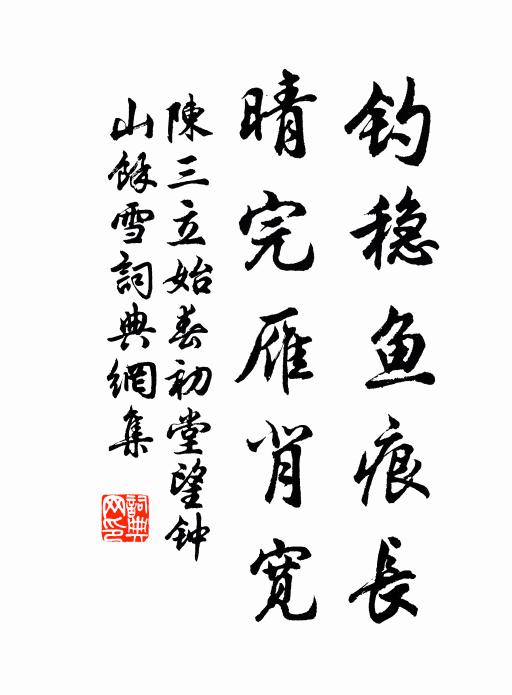 钓稳鱼痕长
晴完雁背宽
陳三立始春初堂望钟
山餘雪詞典網集
詞典网印